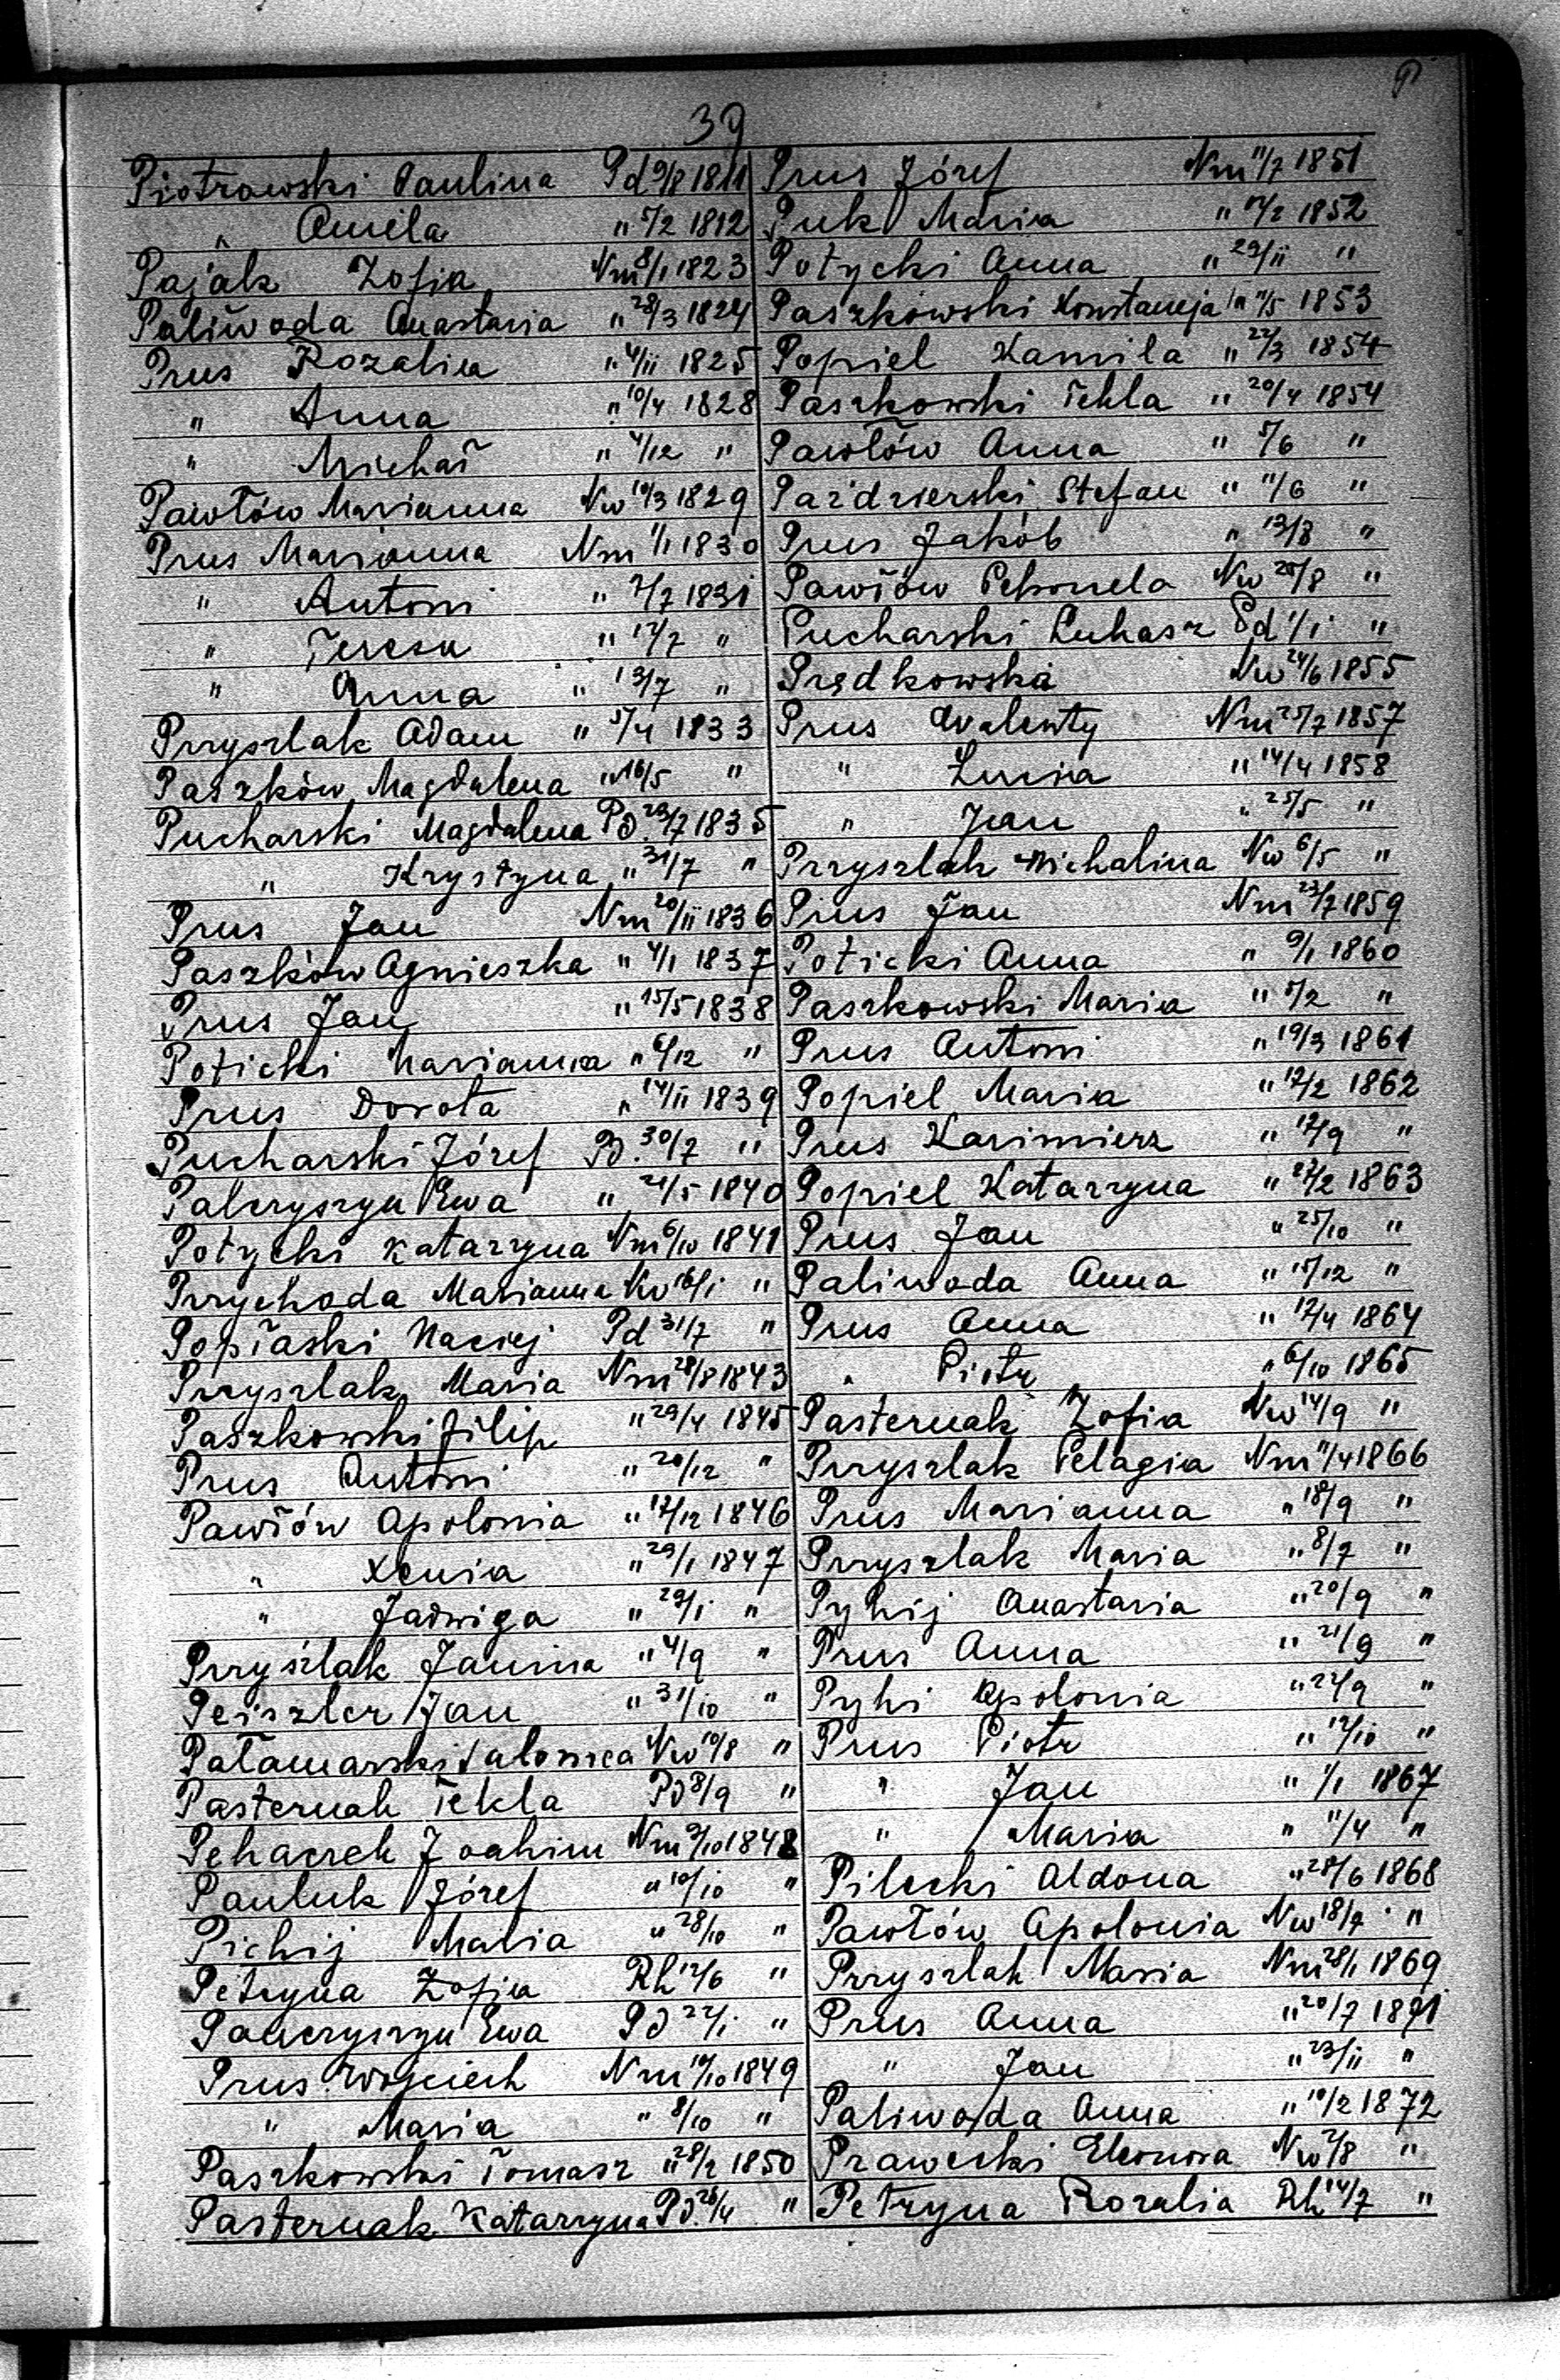 39
Piotrowski Paulina Pd 9/8 1811
" Amela " 5/2 1812
Pająk Zofia Nm 8/1 1823
Paliwoda Anastazia " 28/3 1824
Prus Rozalia " 4/11 1825
" Anna " 10/4 1828
" Michał " 4/12 "
Pawłów Marianna Nw 10/3 1829
Prus Marianna Nm 1/1 1830
" Antoni " 2/7 1831
" Teresa " 12/7 "
" Anna " 13/7 "
Przyszlak Adam " 5/4 1833
Paszków Magdalena " 16/5 "
Pucharski Magdalena Pd. 29/7 1835
" Krystyna " 31/7 "
Prus Jan Nm 20/11 1836
Paszków Agnieszka " 4/1 1837
Prus Jan " 15/5 1838
Poticki Marianna " 6/12 "
Prus Dorota " 14/11 1839
Pucharski Józef Pd. 30/7 "
Palczyszyn Ewa " 21/5 1840
Potycki Katarzyna Nm 6/10 1841
Przychoda Marianna Nw 16/1 "
Popłaski Maciej Pd 31/7 "
Przyszlak Maria Nm 28/8 1843
Paszkowski Filip " 29/4 1845
Prus Antoni " 20/12 "
Pawłów Apolonia " 12/12 1846
" Xenia " 29/1 1847
" Jadwiga " 29/1 "
Przyszlak Janina " 4/9 "
Peiszler Jan " 31/10 "
Patamarski Salomea Nw 10/8 "
Pasternak Tekla Pd 8/9 "
Pehaczek Joahim Nm 9/10 1848
Pauluk Józef " 10/10 "
Pichij Maria " 28/10 "
Petryna Zofia Rh 12/6 "
Palczyszyn Ewa Pd 22/1 "
Prus Wojciech Nm 10/10 1849
" Maria " 8/10 "
Paszkowski Tomasz " 28/2 1850
Pasternak Katarzyna Pd. 26/4 "
Prus Józef Nm 11/7 1851
Puk Maria " 12/2 1852
Potycki Anna " 29/11 "
Paszkowski Konstancja " 11/5 1853
Popiel Kamila " 22/3 1854
Paszkowski Tekla " 20/4 1854
Pawłów Anna " 5/6 "
Paździerski Stefan " 11/6 "
Prus Jakób " 13/8 "
Pawłów Petronela Nw 28/8 "
Pucharski Łukasz Pd 1/1 "
Prędkowska Nw 24/6 1855
Prus Walenty Nm 25/2 1857
" Lucia " 14/4 1858
" Jan " 25/5 "
Przyszlak Michalina Nw 6/5 "
Prus Jan Nm 23/7 1859
Poticki Anna " 9/1 1860
Paszkowski Maria " 5/2 "
Prus Antoni " 19/3 1861
Popiel Maria " 12/2 1862
Prus Kazimierz " 12/9 "
Popiel Katarzyna " 27/2 1863
Prus Jan " 25/10 "
Paliwoda Anna " 15/12 "
Prus Anna " 12/4 1864
" Piotr " 6/10 1865
Pasternak Zofia Nw 14/9 "
Przyszlak Pelagia Nm 11/4 1866
Prus Marianna " 18/9 "
Przyszlak Maria " 8/7 "
Pyhij Anastazia " 20/9 "
Prus Anna " 21/9 "
Pyhi Apolonia " 22/9 "
Prus Piotr " 12/10 "
" Jan " 1/1 1867
" Maria " 11/4 "
Pilecki Aldona " 28/6 1868
Pawłów Apolonia Nw 18/7 "
Przyszlak Maria Nm 28/1 1869
Prus Anna " 20/7 1871
" Jan " 23/11 "
Paliwoda Anna " 10/2 1872
Prawecki Eleonora Nw 2/8 "
Petryna Rozalia Rh 14/7 "